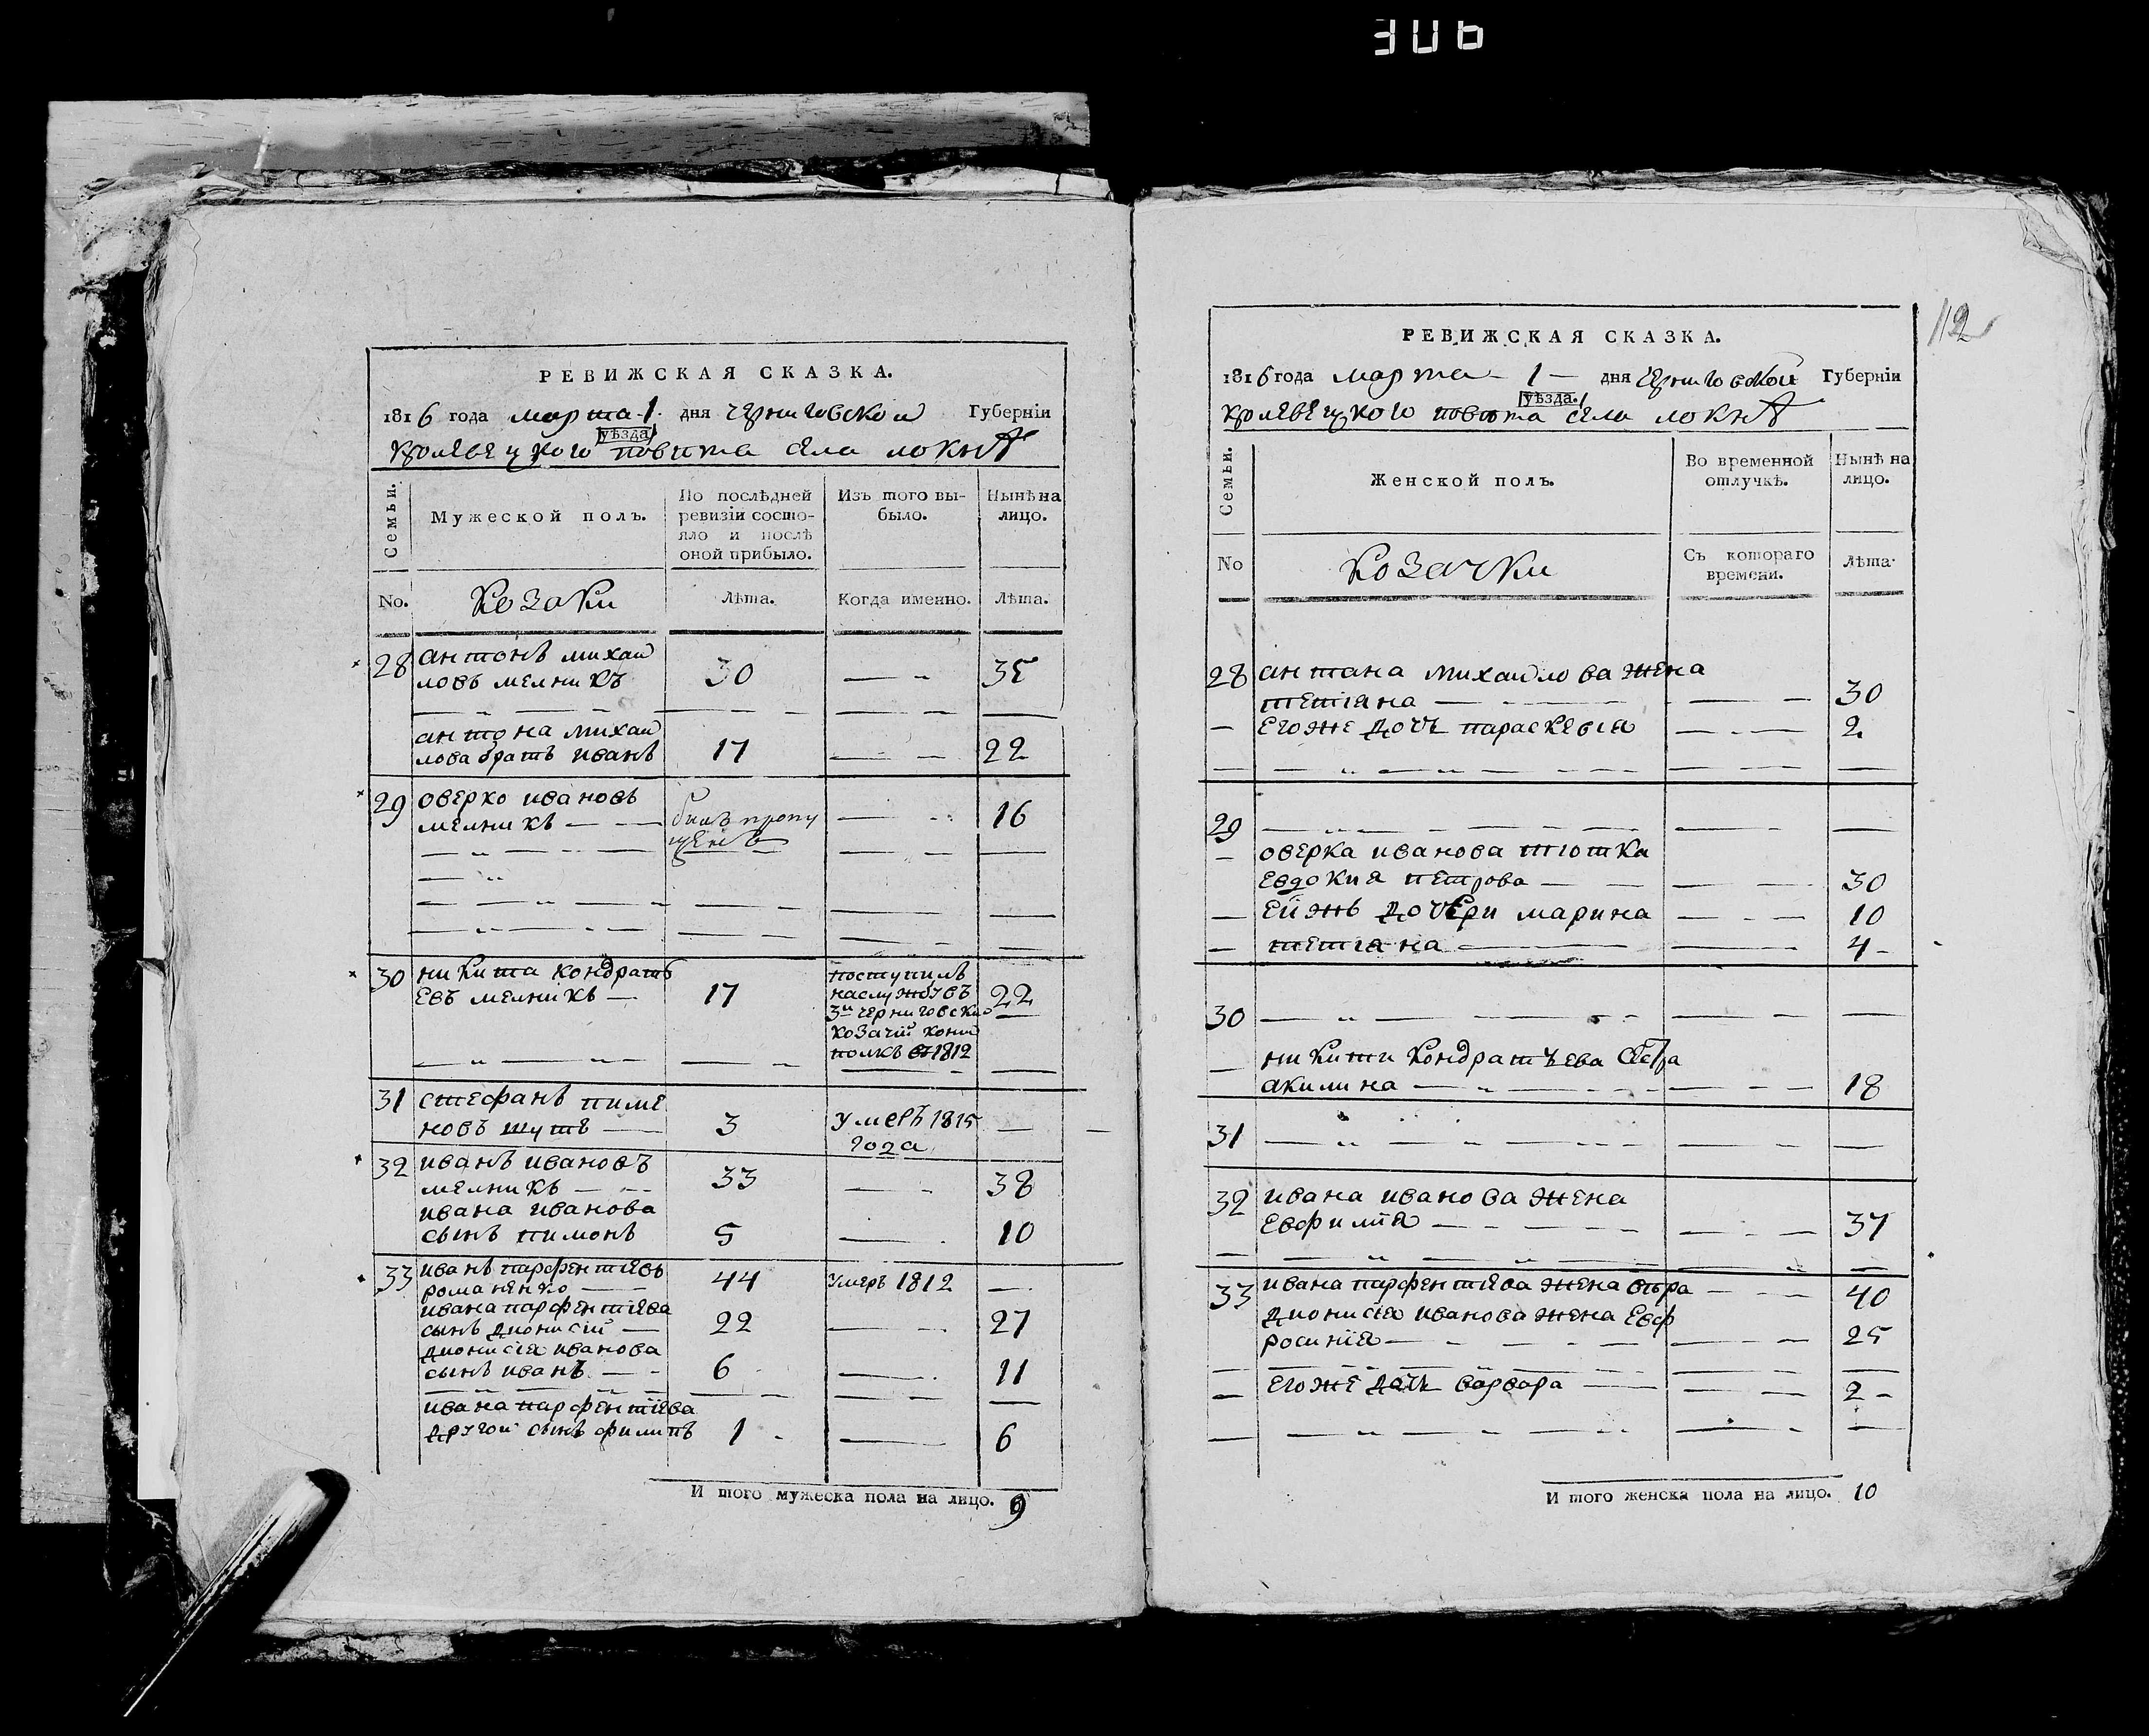 306
РЕВИЖСКАЯ СКАЗКА.
1816 года марта 1 дня черниговской Губерніи
уѣзда
кролевецкого повѣта села локнѣ
Семьи.
Мужеской полъ.
По послѣдней ревизіи состояло и послѣ оной прибыло.
Изъ того выбыло.
Нынѣ на лицо.
No.
Козаки
Лѣта.
Когда именно.
Лѣта.
28 антонъ михай
ловъ мелникъ 30 35
антона михай
лова братъ иванъ 17 22
29 оверко ивановъ
мелникъ билъ пропу 16
щенъ
30 никита кондрать
евъ мелникъ 17 22
поступилъ
на службу въ
3й черниговский
козачій конй
полкъ въ 1812
31 стефанъ пиме
новъ шутъ 3 умеръ 1815
года
32 иванъ ивановъ
мелникъ 33 38
ивана иванова
сынъ пимонъ 5 10
33 иванъ парфентіевъ
романенко 44 умеръ 1812
ивана парфентіева
сынъ дионисій 22 27
дионисія иванова
сынъ иванъ 6 11
ивана парфентіева
другой сынъ филипъ 1 6
И того мужеска пола на лицо. 9
112
РЕВИЖСКАЯ СКАЗКА.
1816 года марта 1 дня черниговской Губерніи
уѣзда.
кролевецкого повѣта села локнѣ
Семьи.
Женской полъ.
Во временной отлучкѣ.
Нынѣ на лицо.
No
Козачки
Съ котораго времени.
Лѣта.
28 антана михайлова жена
тетіяна 30
егоже дочъ параскевія 2
29
оверка иванова тіотка
евдокия петрова 30
ей жъ дочери марина 10
тетіяна 4
30
никити кондратъева сестра
акилина 18
31
32 ивана иванова жена
евфимія 37
33 ивана парфентіева жена вѣра 40
дионисія иванова жена евф
росинія 25
егоже дочъ варвара 2
И того женска пола на лицо. 10